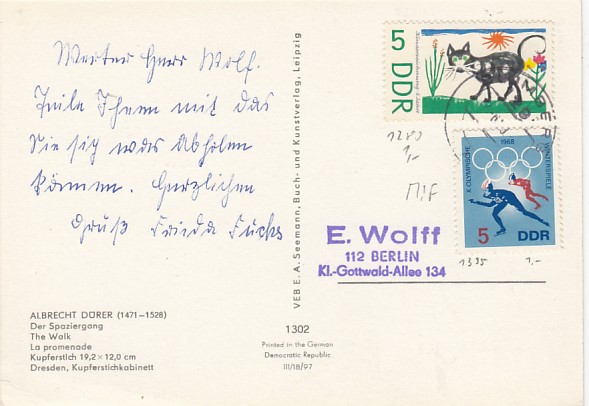 Werter Herr Wolf.
Teile Ihnen mit das
Sie sich was Abholen
können. Herzlichen
Gruß Frieda Fuchs
ALBRECHT DÜRER (1471–1528)
Der Spaziergang
The Walk
La promenade
Kupferstich 19,2 × 12,0 cm
Dresden, Kupferstichkabinett
VEB E. A. Seemann, Buch- und Kunstverlag, Leipzig
1302
Printed in the German
Democratic Republic
III/18/97
5
DDR
1280
1,-
X. OLYMPISCHE
1968
WINTERSPIELE
5 DDR
1335 1,-
E. Wolff
112 BERLIN
Kl.-Gottwald-Allee 134